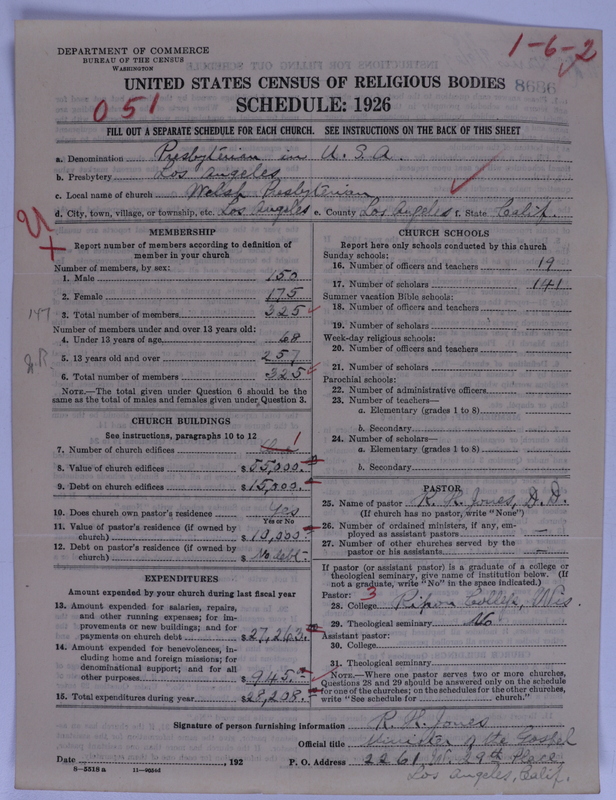 DEPARTMENT OF COMMERCE
BUREAU OF THE CENSUS
WASHINGTON
1-6-2
8686
UNITED STATES CENSUS OF RELIGIOUS BODIES
051
SCHEDULE: 1926
FILL OUT A SEPARATE SCHEDULE FOR EACH CHURCH. SEE INSTRUCTIONS ON THE BACK OF THIS SHEET
a. Denomination Presbyterian in U.S.A.
b. Presbytery Los Angeles
c. Local name of church Welsh Presbyterian
d. City, town, village, or township, etc. Los Angeles e. County Los Angeles f. State Calif.
U
MEMBERSHIP
Report number of members according to definition of
member in your church
Number of members, by sex:
1. Male 150
2. Female 175
3. Total number of members 325
147
Number of members under and over 13 years old:
4. Under 13 years of age 68
5. 13 years old and over 257
6. Total number of members 325
NOTE.—The total given under Question 6 should be
the same as the total of males and females given under Question 3.
CHURCH BUILDINGS
See instructions, paragraphs 10 to 12
7. Number of church edifices 1
8. Value of church edifices $ 55,000.
9. Debt on church edifices $ 15,000.
10. Does church own pastor's residence Yes
Yes or No
11. Value of pastor's residence (if owned by
church) $ 10,000
12. Debt on pastor's residence (if owned by
church) $ No debt
EXPENDITURES
Amount expended by your church during last fiscal year
13. Amount expended for salaries, repairs,
and other running expenses; for im-
provements or new buildings; and for
payments on church debt $ 27,263.
14. Amount expended for benevolences, in-
cluding home and foreign missions; for
denominational support; and for all
other purposes $ 945.
15. Total expenditures during year $ 28,208.
CHURCH SCHOOLS
Report here only schools conducted by this church
Sunday schools:
16. Number of officers and teachers 19
17. Number of scholars 141
Summer vacation Bible schools:
18. Number of officers and teachers
19. Number of scholars
Week-day religious schools:
20. Number of officers and teachers
21. Number of scholars
Parochial schools:
22. Number of administrative officers
23. Number of teachers—
a. Elementary (grades 1 to 8)
b. Secondary
24. Number of scholars—
a. Elementary (grades 1 to 8)
b. Secondary
PASTOR
25. Name of pastor R. R. Jones, D.D.
(If church has no pastor, write "None")
26. Number of ordained ministers, if any, em-
ployed as assistant pastors —
27. Number of other churches served by the
pastor or his assistants —
If pastor (or assistant pastor) is a graduate of a college or
theological seminary, give name of institution below. (If
not a graduate, write "No" in the space indicated.)
Pastor: 3
28. College Ripon College, Wis.
29. Theological seminary No
Assistant pastor:
30. College
31. Theological seminary
NOTE.—Where one pastor serves two or more churches,
Questions 28 and 29 should be answered only on the schedule
for one of the churches; on the schedules for the other churches,
write "See schedule for church."
Signature of person furnishing information R. H. Jones
Official title Minister of the Gospel
Date , 192 P. O. Address 2261 W. 29th Place
8-5518 a
Los Angeles, Calif.